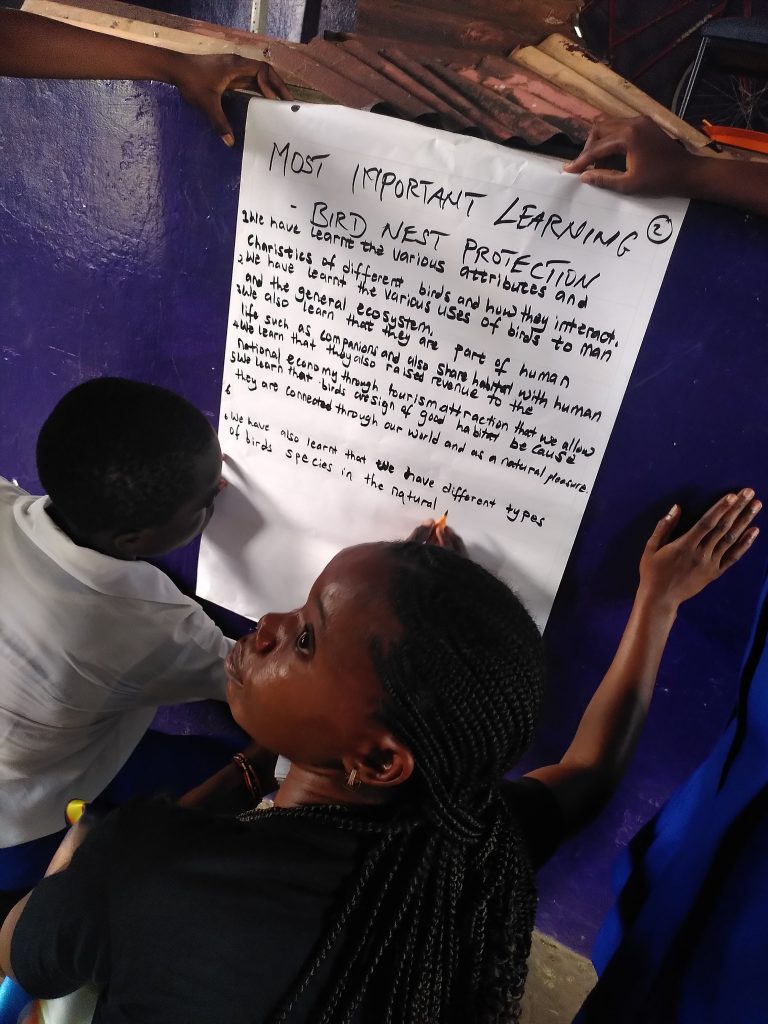 MOST IMPORTANT LEARNING ②
- BIRD NEST PROTECTION
1. We have learnt the various attributes and
charistics of different birds and how they interact.
2. We have learnt the various uses of birds to man
and the general ecosystem.
3. We also learn that they are part of human
life such as companions and also share habitat with human
4. We learn that they also raised revenue to the
national economy through tourism attraction that we allow
5. We learn that birds are sign of good habitat because
they are connected through our world and as a natural pleasure.
6
6. We have also learnt that we have different types
of birds species in the natural